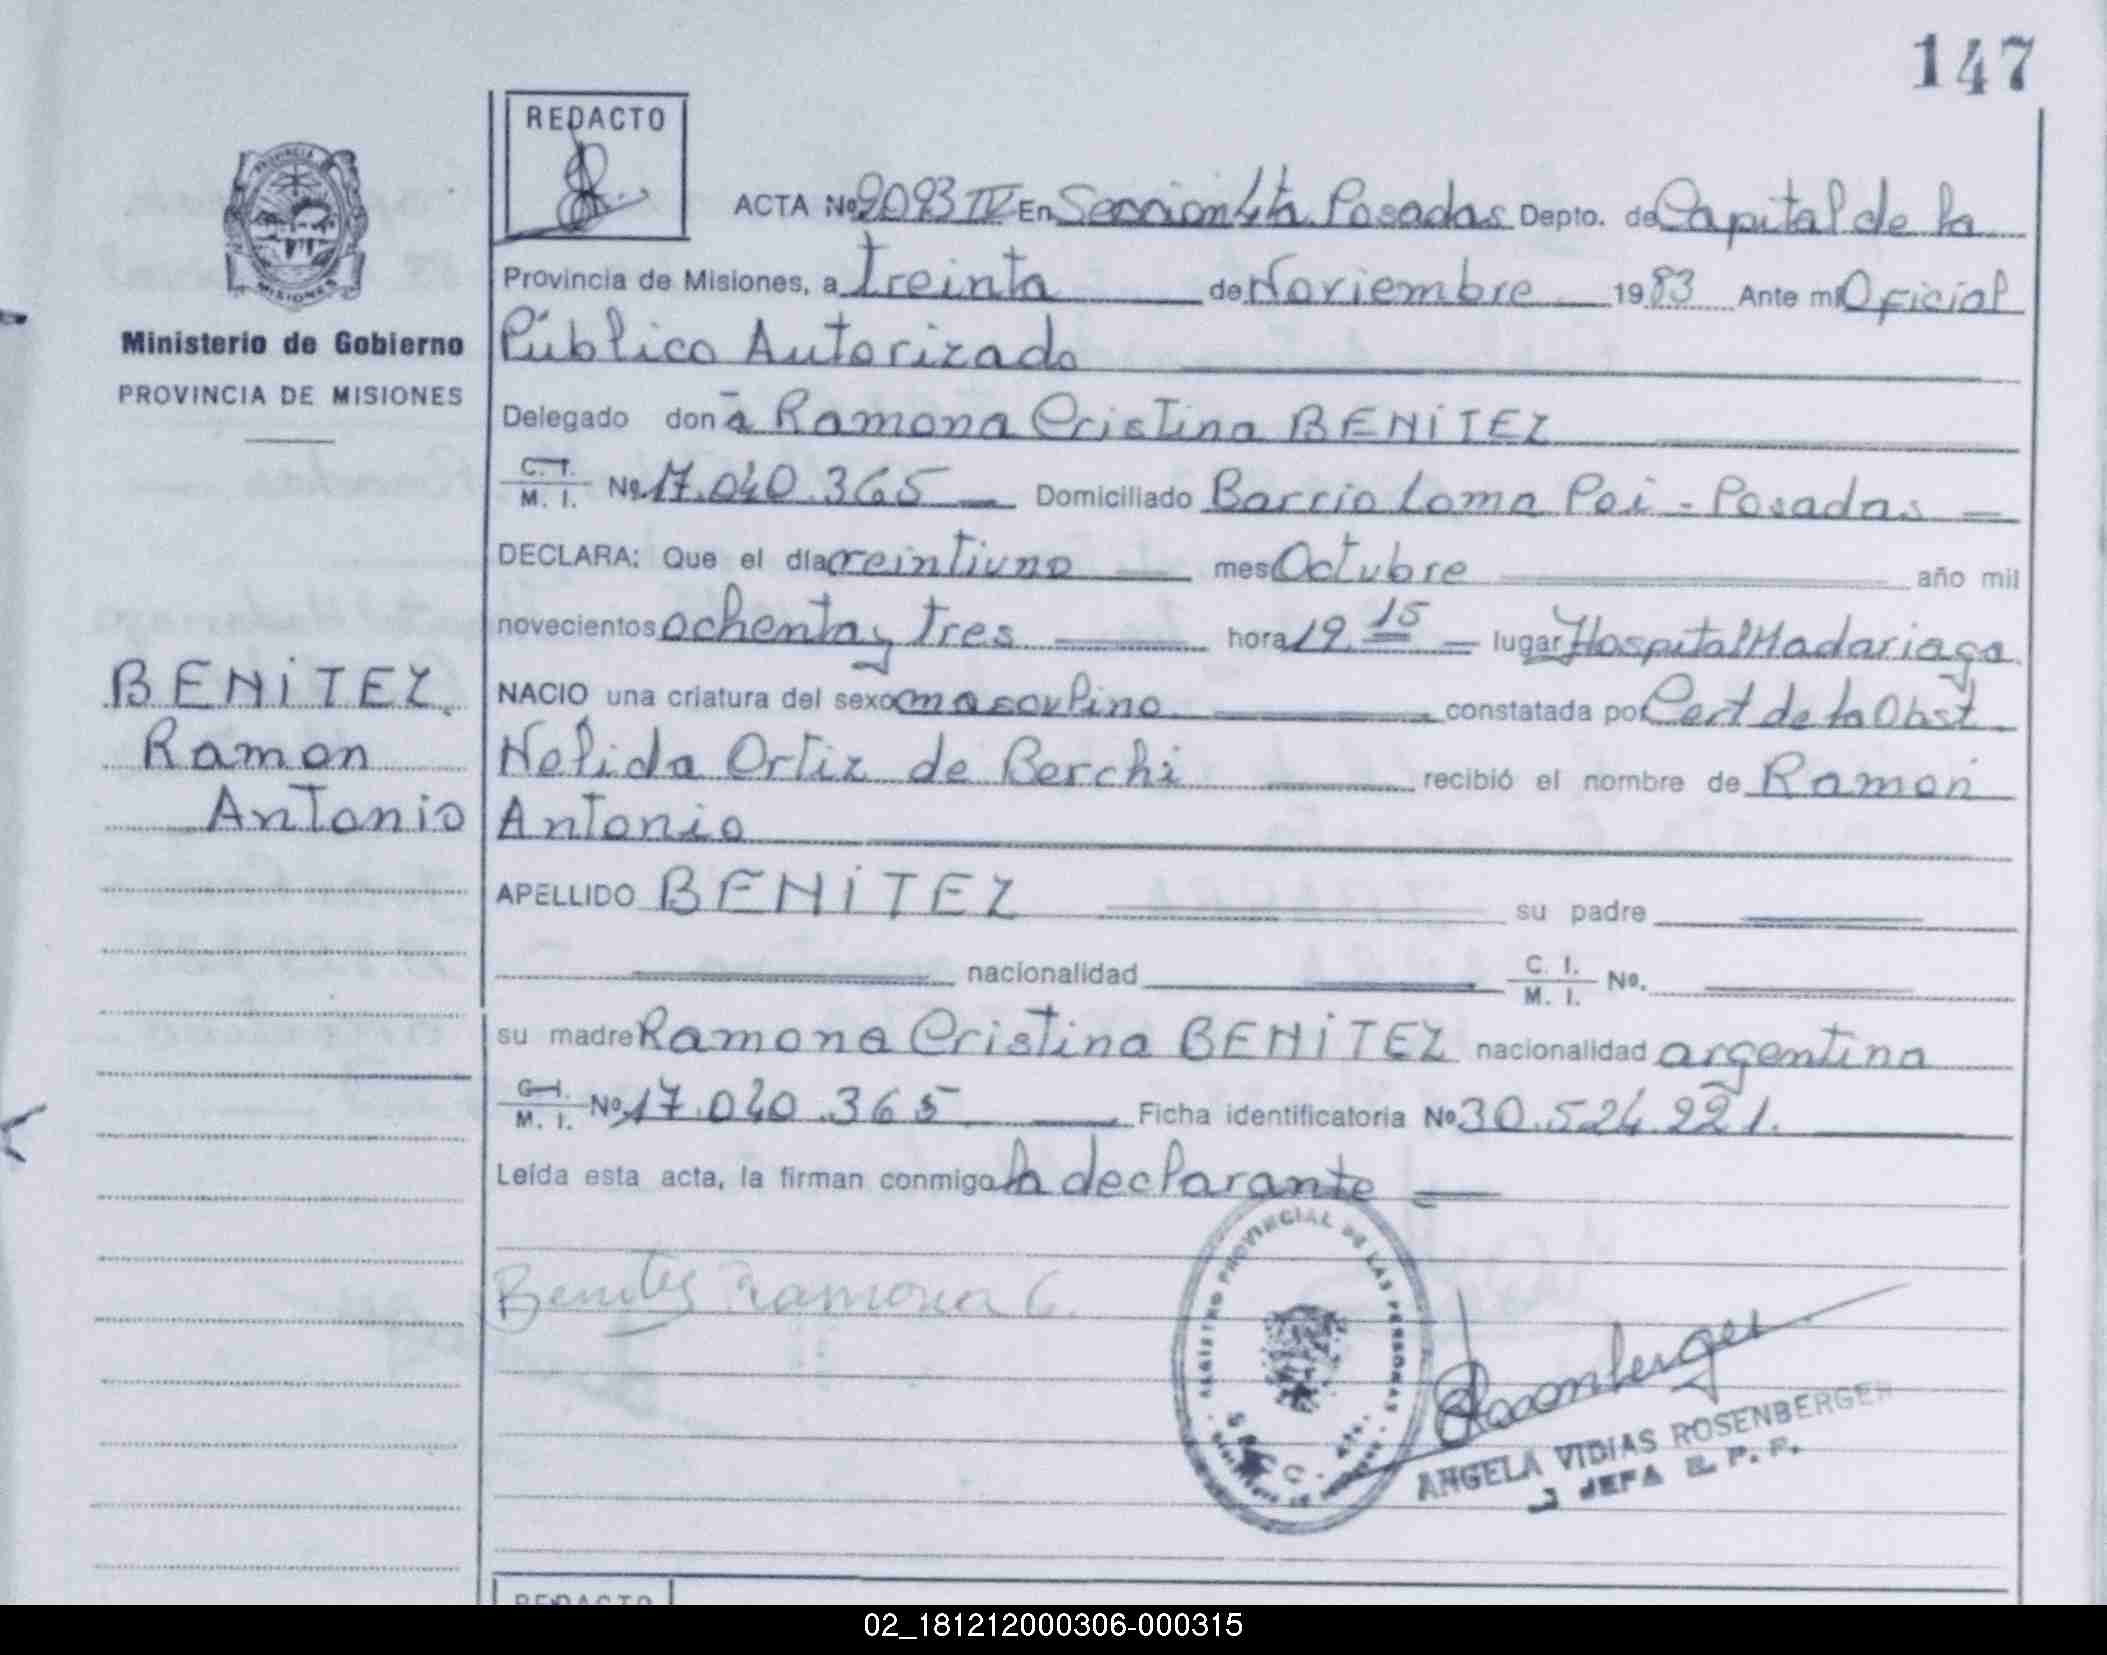 147
REDACTO
ACTA Nº 2093 IV En Sección 4ta Posadas Depto. de Capital de la
Provincia de Misiones, a treinta de Noviembre 1983 Ante mi Oficial
Público Autorizado
Delegado don a Ramona Cristina BENITEZ
C. I. M. I. Nº 17.040.365 Domiciliado Barrio Loma Poi - Posadas
DECLARA: Que el día veintiuno mes Octubre año mil
novecientos ochenta y tres hora 19 15 lugar Hospital Madariaga
NACIO una criatura del sexo masculino constatada por Cert de la Obst
Nelida Ortiz de Berchi recibió el nombre de Ramon
Antonio
APELLIDO BENITEZ su padre
nacionalidad C. I. M. I. No.
su madre Ramona Cristina BENITEZ nacionalidad argentina
C. I. M. I. Nº 17.040.365 Ficha identificatoria Nº 30.524.221.
Leída esta acta, la firman conmigo la declarante
Benitez Ramona C.
REGISTRO PROVINCIAL DE LAS PERSONAS
Rosenberger
ANGELA VIDIAS ROSENBERGER
JEFA
PROVINCIA
MISIONES
Ministerio de Gobierno
PROVINCIA DE MISIONES
BENITEZ
Ramon
Antonio
REDACTO
02_181212000306-000315